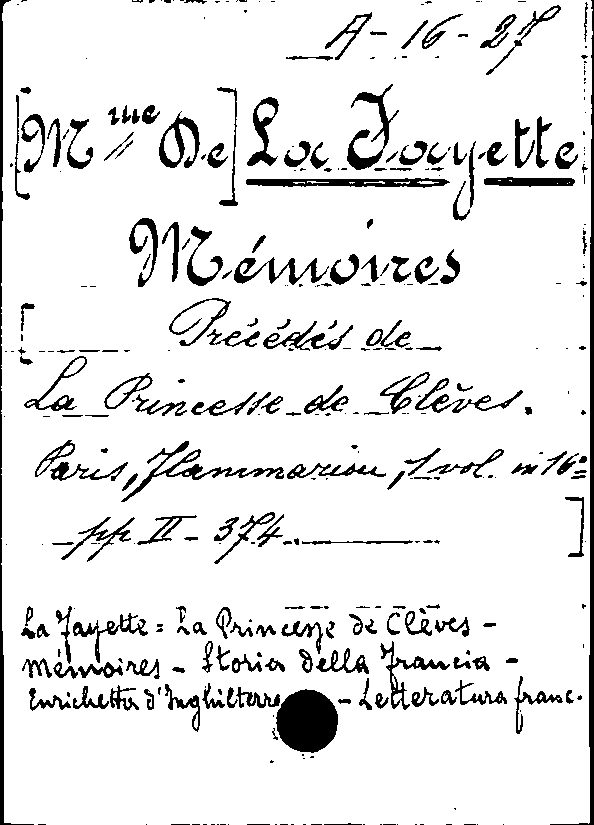 A - 16 - 27
[Mme De] La Fayette
Mémoires
[ Précédés de
La Princesse de Clèves.
Paris, Flammarion, 1 vol. in 16º
pp II - 374. ]
La Fayette = La Princesse de Clèves -
Mémoires - Storia della Francia -
Enrichetta d'Inghilterra - Letteratura franc.